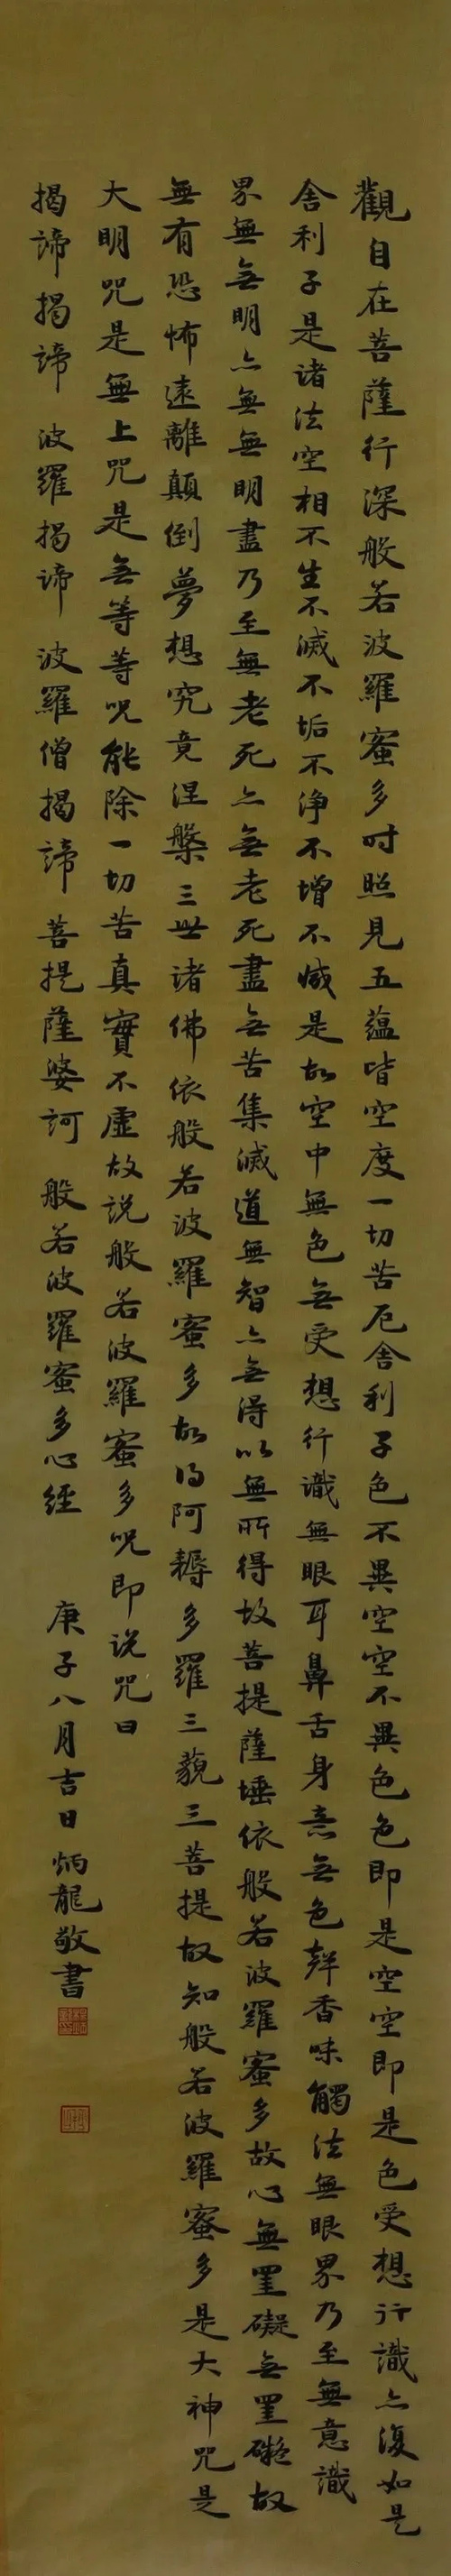 觀自在菩薩行深般若波羅蜜多時照見五蘊皆空度一切苦厄舍利子色不異空空不異色色即是空空即是色受想行識亦復如是
舍利子是諸法空相不生不滅不垢不淨不增不減是故空中無色無受想行識無眼耳鼻舌身意無色聲香味觸法無眼界乃至無意識
界無無明亦無無明盡乃至無老死亦無老死盡無苦集滅道無智亦無得以無所得故菩提薩埵依般若波羅蜜多故心無罣礙無罣礙故
無有恐怖遠離顛倒夢想究竟涅槃三世諸佛依般若波羅蜜多故得阿耨多羅三藐三菩提故知般若波羅蜜多是大神咒是
大明咒是無上咒是無等等咒能除一切苦真實不虛故說般若波羅蜜多咒即說咒曰
揭諦揭諦 波羅揭諦 波羅僧揭諦 菩提薩婆訶 般若波羅蜜多心經 庚子八月吉日炳龍敬書